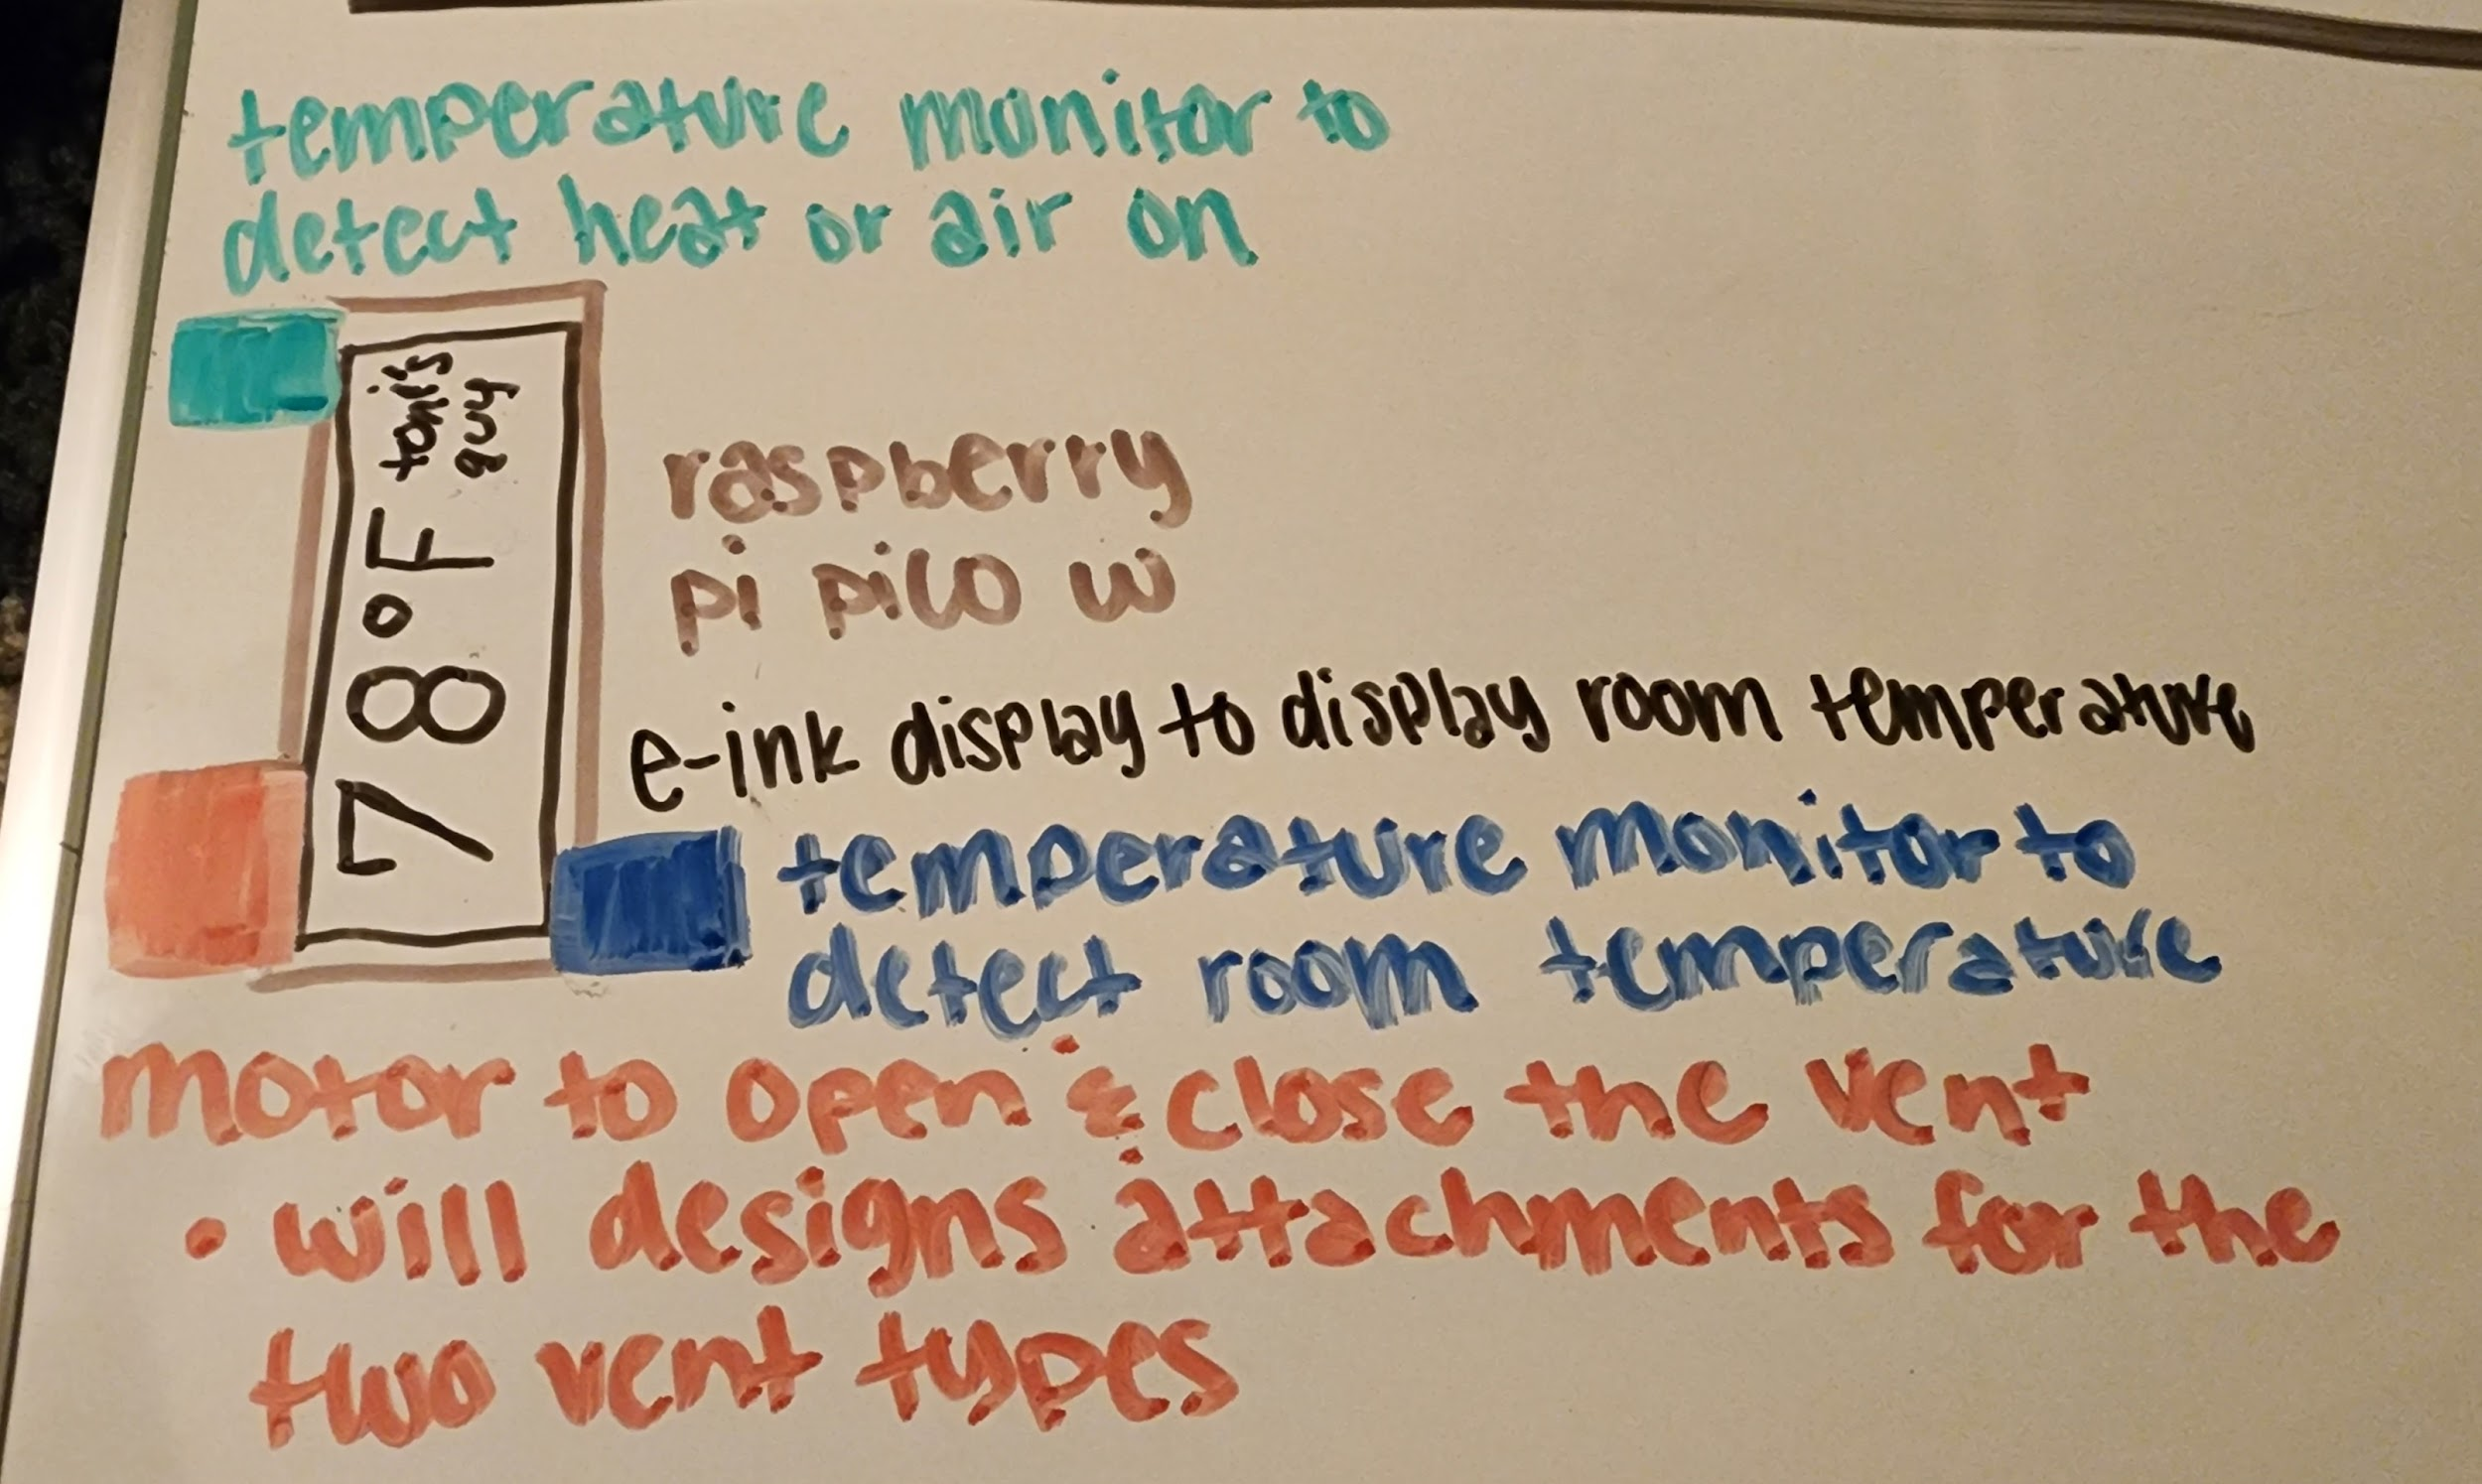 temperature monitor to
detect heat or air on
78°F toni's
guy
raspberry
pi pico w
e-ink display to display room temperature
temperature monitor to
detect room temperature
motor to open & close the vent
• will designs attachments for the
two vent types